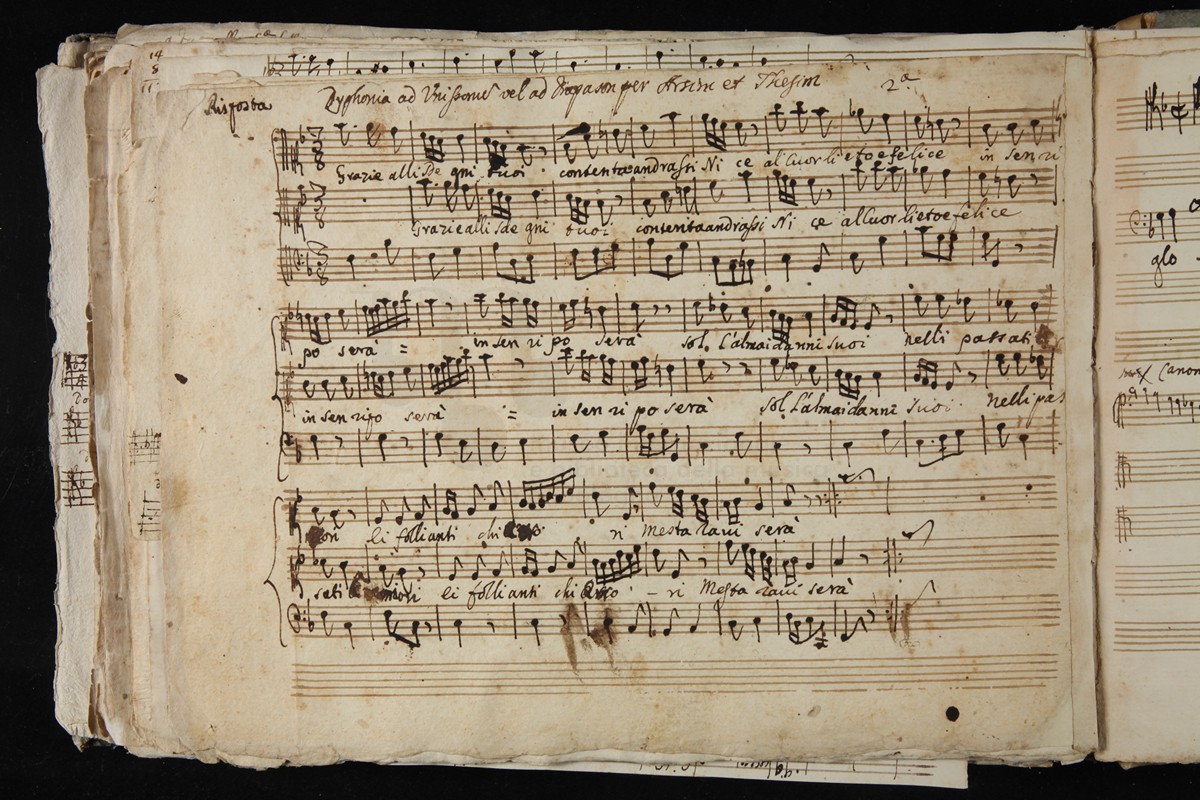 Risposta
Dyphonia ad Unissonus vel ad Diapason per Arsim et Thesim 2ª
Grazie alli sde gni tuoi contenta andrassi Ni ce al Cuor lieto e felice in sen ri
Grazie alli sde gni tuoi contenta andrassi Ni ce al Cuor lieto e felice
po serà = in sen ri po serà sol. L'alma i danni suoi nelli passati
in sen ripo serà = in sen ri po serà sol L'alma i danni suoi nelli pas
li folli anti chi ri mestaravi serà
sati li folli anti chi - ri Mesta ravi serà
glo -
Canon